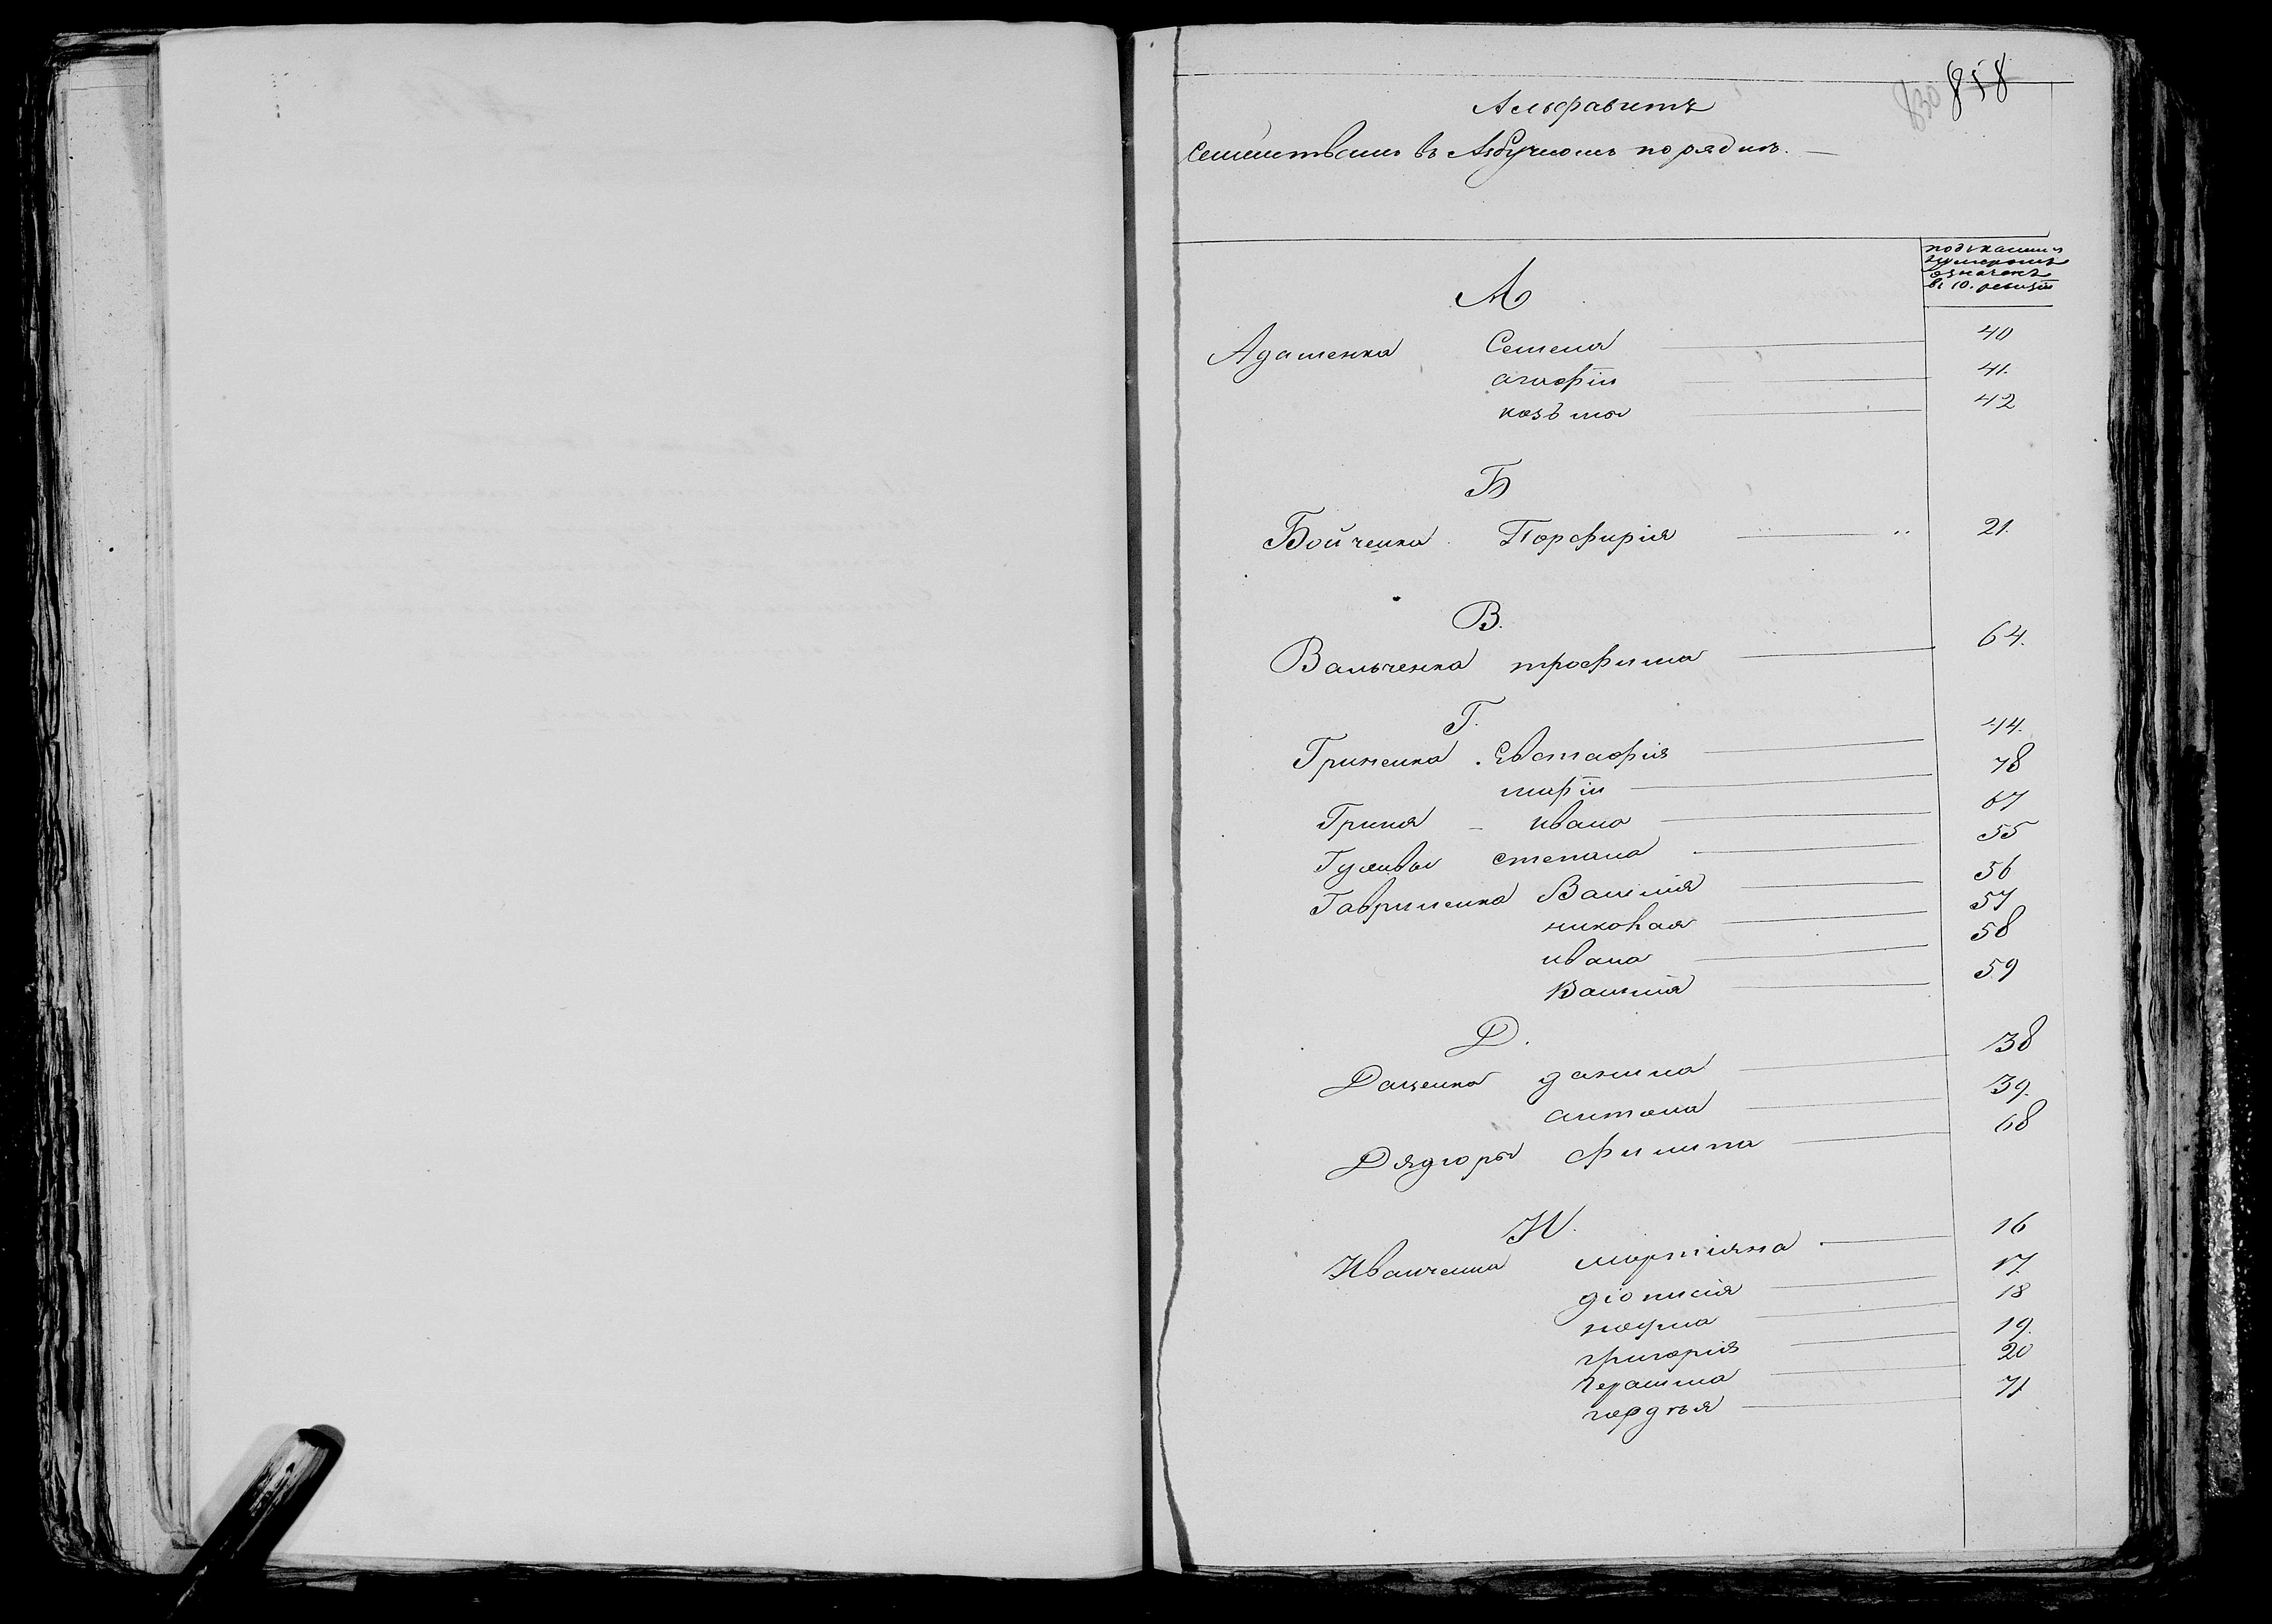 858
830
Алфавитъ
Семействамъ въ Азбучномъ порядкѣ. —
подъ какимъ
нумеромъ
означенъ
въ 10. ревизіи
А
Адаменка Семена 40
агафіи 41.
козьмы 42
Б
Бойченка Порфирія 21.
В.
Вальченка трофима 64.
Г.
Гриненка Евстафія 44.
марfіи 78
Гриня ивана 67
Гуливы степана 55
Гавриленка Василія 56
николая 57
ивана 58
Василія 59
Д.
Даценка данила 38
антона 39.
Дядюры филипа 68
И.
Иванченка мартіяна 16
діонисія 17.
наума 18
григорія 19.
Герасима 20
гордѣя 71